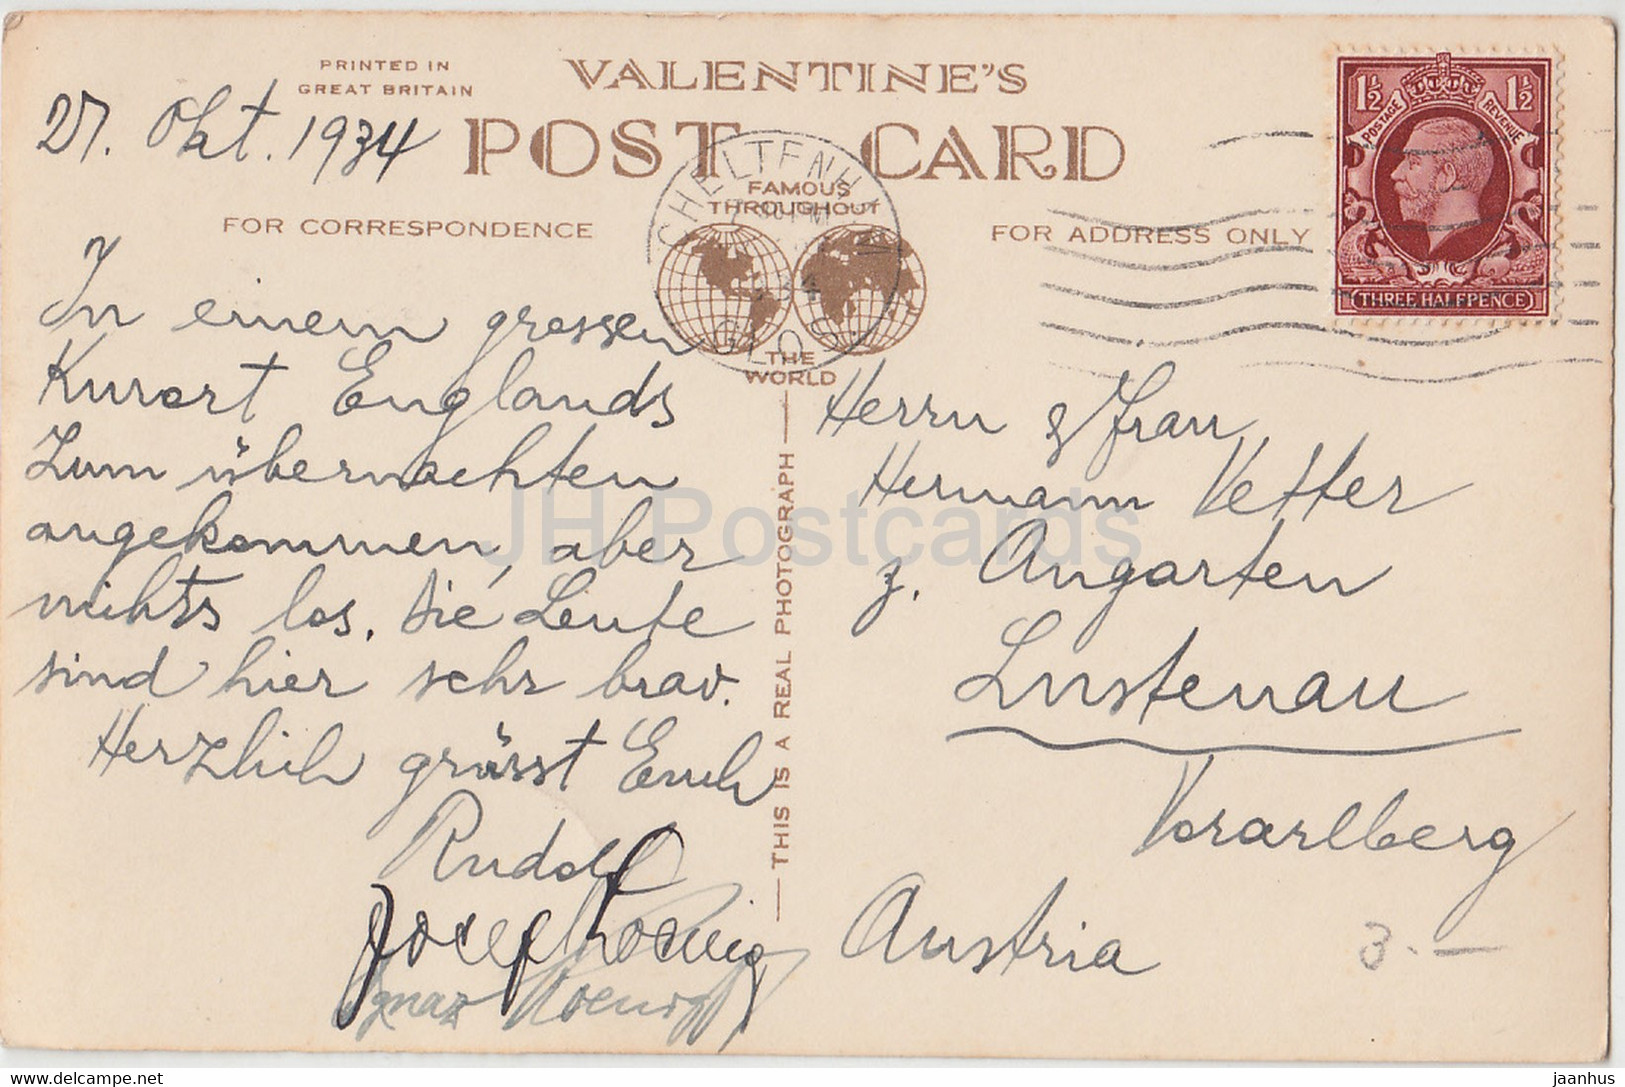 PRINTED IN
GREAT BRITAIN
VALENTINE'S
POST CARD
FAMOUS
THROUGHOUT
THE
WORLD
FOR CORRESPONDENCE
FOR ADDRESS ONLY
CHELTENHAM
GLOS.
1½ 1½
POSTAGE REVENUE
THREE HALFPENCE
27. Okt. 1934
In einem grossen
Kurort Englands
Zum übernachten
angekommen, aber
nichts los. Die Leute
sind hier sehr brav.
Herzlich grüsst Euch
Rudolf
Josef Koenig
Ignaz Koenig
THIS IS A REAL PHOTOGRAPH
Herrn & Frau
Hermann Vetter
z. Angarten
Lustenau
Vorarlberg
Austria
3.—
JH Postcards
delcampe.net
jaanhus